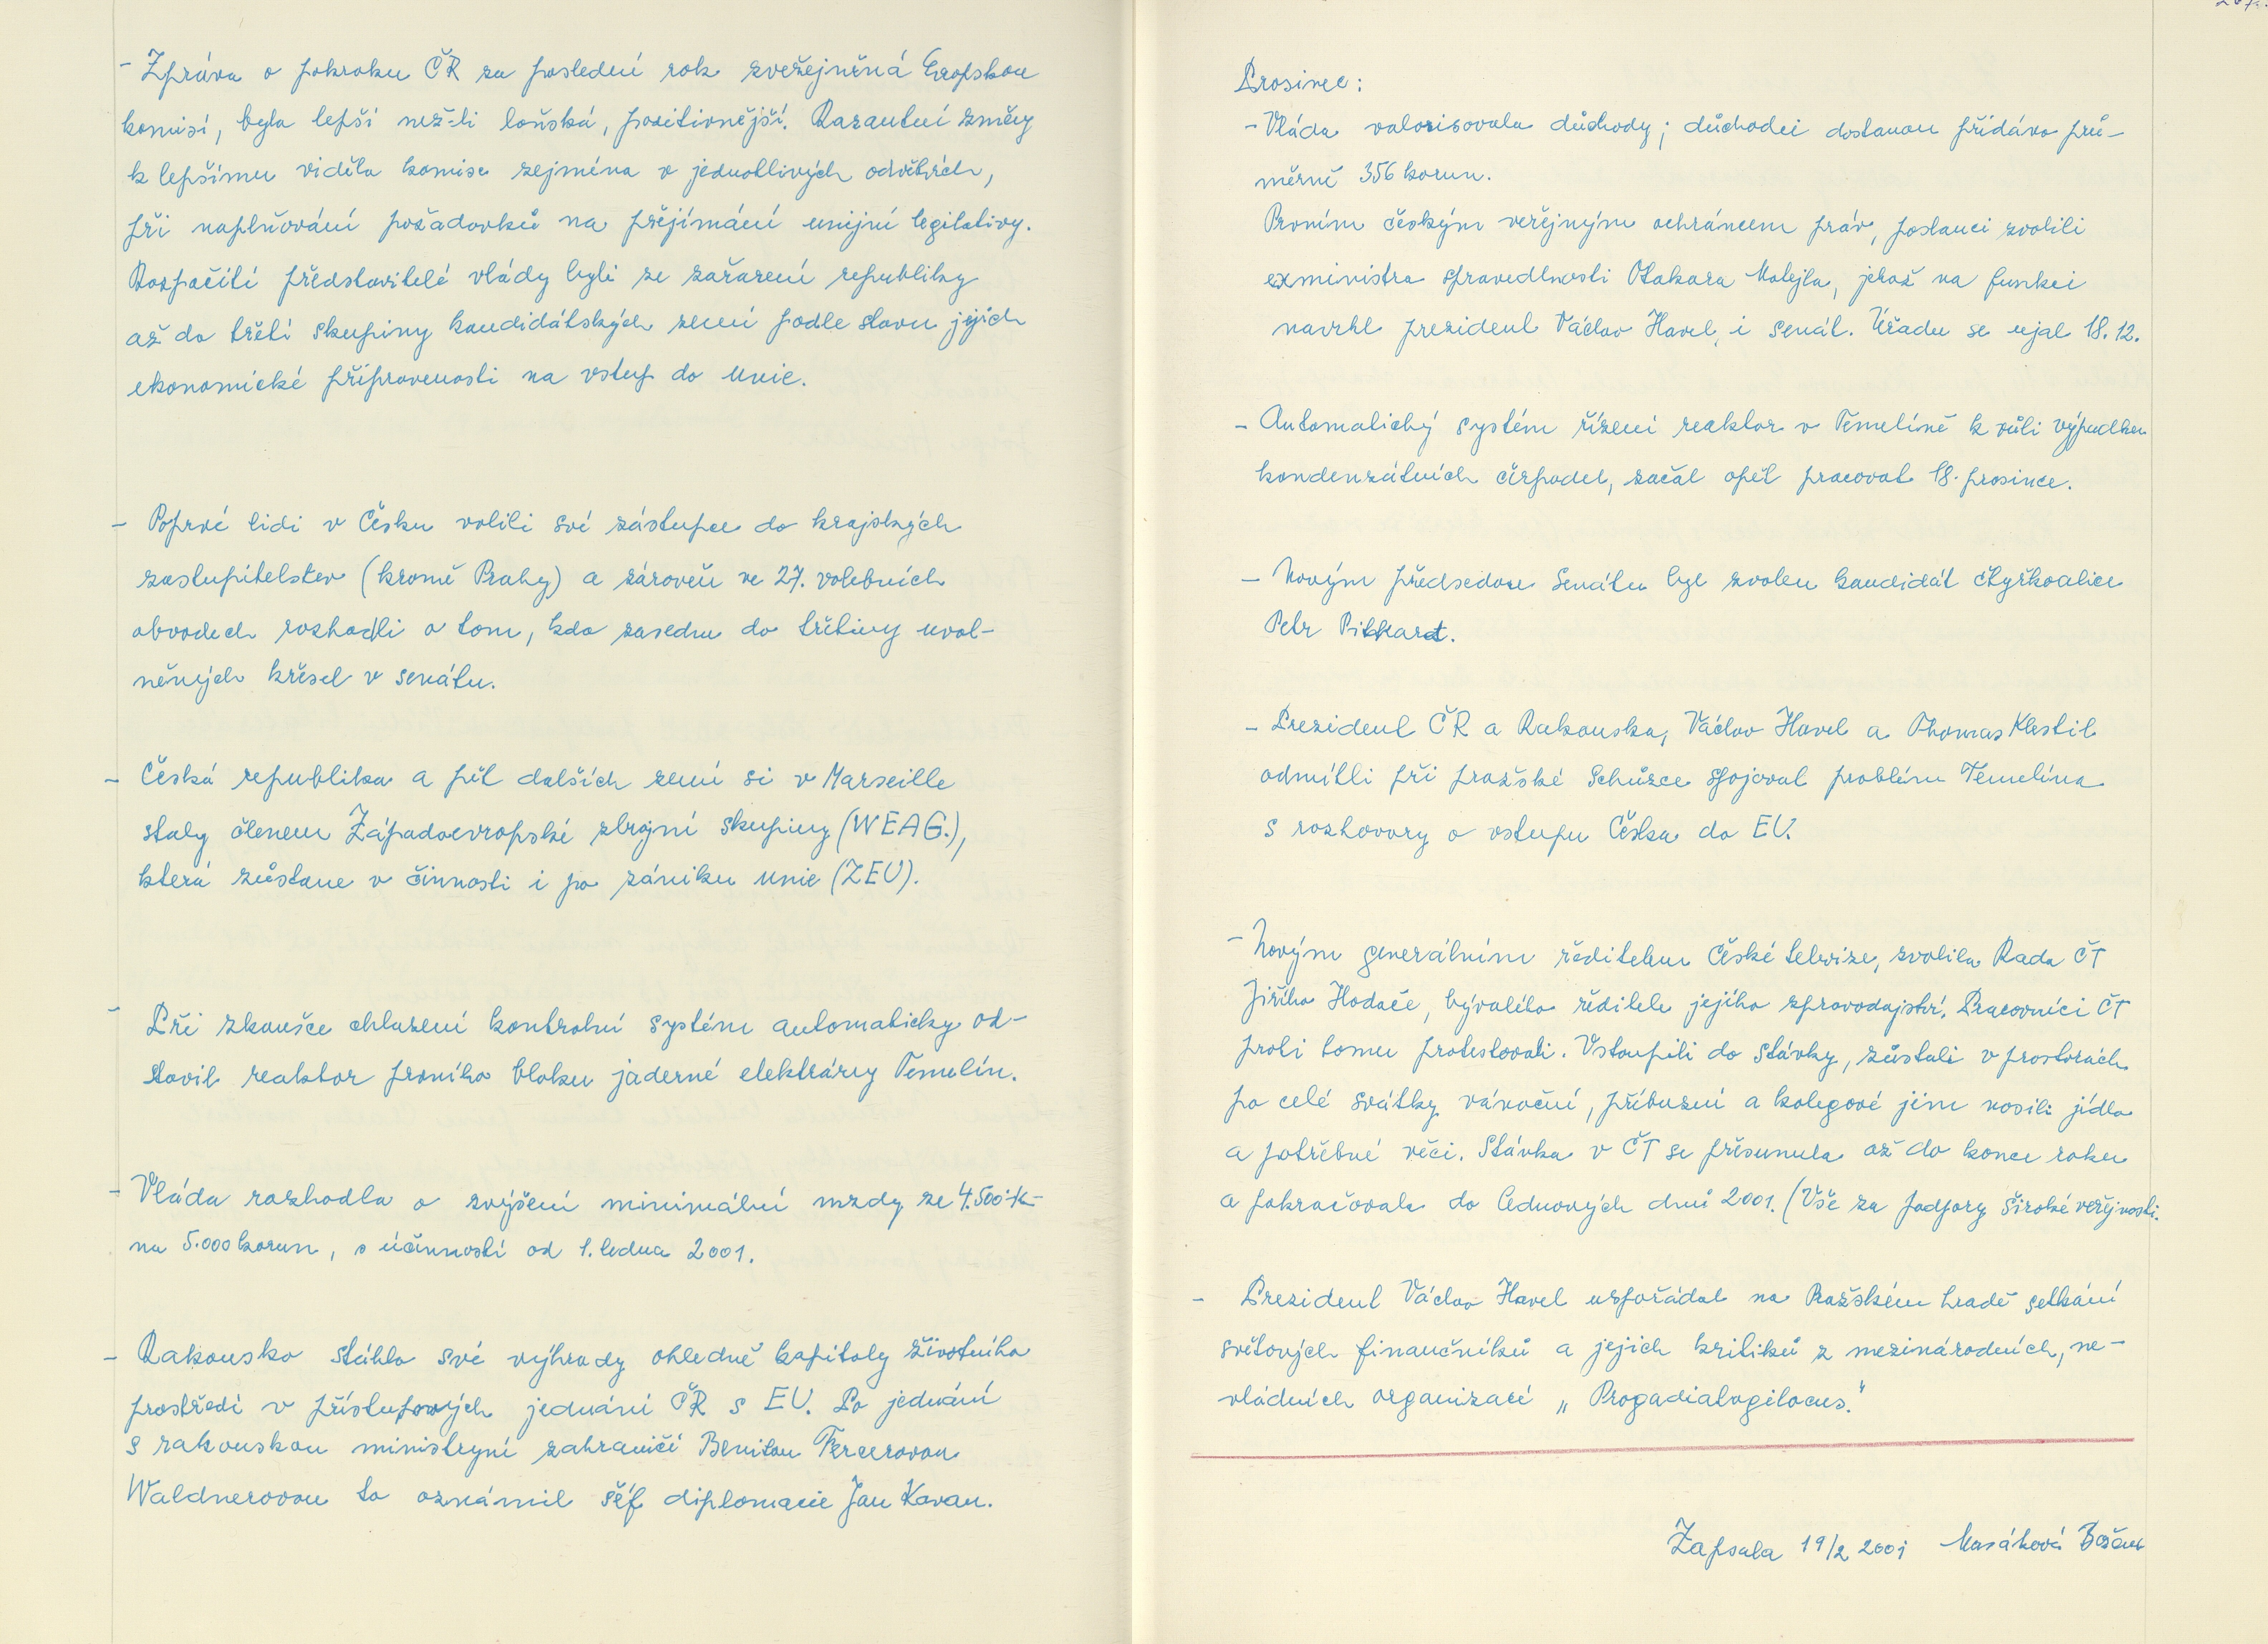 - Zpráva o pokroku ČR za poslední rok zveřejněná Evropskou
komisí, byla lepší než-li loňská, pozitivnější. Razantní změny
k lepšímu viděla komise zejména v jednotlivých odvětvích,
při naplňování požadavků na přejímání unijní legitativy.
Rozpačití představitelé vlády byli ze zařazení republiky
až do třetí skupiny kandidátských zemí podle stavu jejich
ekonomické připravenosti na vstup do unie.
- Poprvé lidi v Česku volili své zástupce do krajských
zastupitelstev (kromě Prahy) a zároveň ve 27. volebních
obvodech rozhodli o tom, kdo zasedne do třetiny uvol-
něných křesel v senátu.
- Česká republika a pět dalších zemí si v Marseille
staly členem Západoevropské zbrojní skupiny (WEAG.),
která zůstane v činnosti i po zániku unie (ZEU).
- Při zkoušce chlazení kontrolní systém automaticky od-
stavil reaktor prvního bloku jaderné elektrárny Temelín.
- Vláda rozhodla o zvýšení minimální mzdy ze 4.500 K-
na 5.000 korun, s účinností od 1. ledna 2001.
- Rakousko stáhlo své výhrady ohledně kapitoly životního
prostředí v přístupových jednání ČR s EU. Po jednání
s rakouskou ministryní zahraničí Benitou Fererovou
Waldnerovou to oznámil šéf diplomacie Jan Kavan.
Prosinec:
- Vláda valorisovala důchody; důchodci dostanou přidáno prů-
měrně 356 korun.
Prvním českým veřejným ochráncem práv, poslanci zvolili
exministra spravedlnosti Otakara Motejla, jehož na funkci
navrhl prezident Václav Havel, i senát. Úřadu se ujal 18.12.
- Automatický systém řízení reaktor v Temelíně k vůli výpadku
kondenzátních čerpadel, začal opět pracovat 18. prosince.
- Novým předsedou Senátu byl zvolen kandidát čtyřkoalice
Petr Pithart.
- Prezident ČR a Rakouska, Václav Havel a Thomas Klestil
odmítli při pražské schůzce spojovat problém Temelína
s rozhovory o vstupu Česka do EU.
- Novým generálním ředitelem České televize, zvolila Rada ČT
Jiřího Hodače, bývalého ředitele jejího zpravodajství. Pracovníci ČT
proti tomu protestovali. Vstoupili do stávky, zůstali v prostorách
po celé svátky vánoční, příbuzní a kolegové jim nosili jídlo
a potřebné věci. Stávka v ČT se přesunula až do konce roku
a pokračovala do lednových dnů 2001. (Vše za podpory široké veřejnosti.
- Prezident Václav Havel uspořádal na Pražském hradě setkání
světových finančníků a jejich kritiků z mezinárodních, ne-
vládních organizací „Progadialogilocus."
Zapsala 19/2 2001 Božena